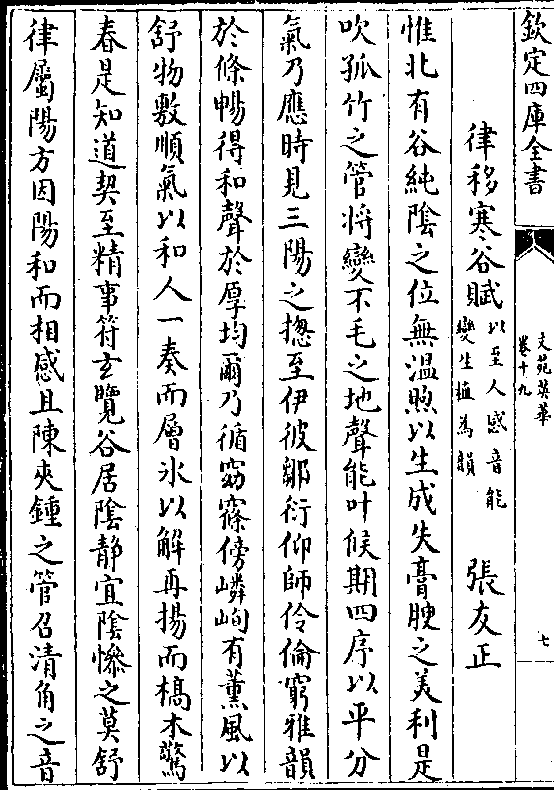 欽定四庫全書
文苑英華
卷十九
七
律移寒谷賦以至人感音能變生植為韻　張友正
惟北有谷純陰之位無溫煦以生成失膏腴之美利是
吹孤竹之管将變不毛之地聲能叶候期四序以平分
氣乃應時見三陽之揔至伊彼鄒衍仰師伶倫窮雅韻
於條暢得和聲於厚均爾乃循窈窱傍嶙峋有薰風以
舒物敷順氣以和人一奏而層氷以解再揚而槁木驚
春是知道契至精事符玄覽谷居陰静宜陰慘之莫舒
律屬陽方因陽和而相感且陳夾鍾之管召清角之音